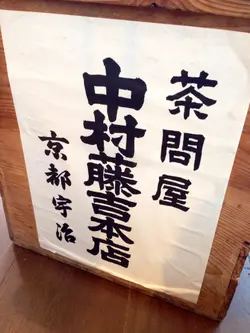 茶問屋
中村藤吉本店
京都宇治